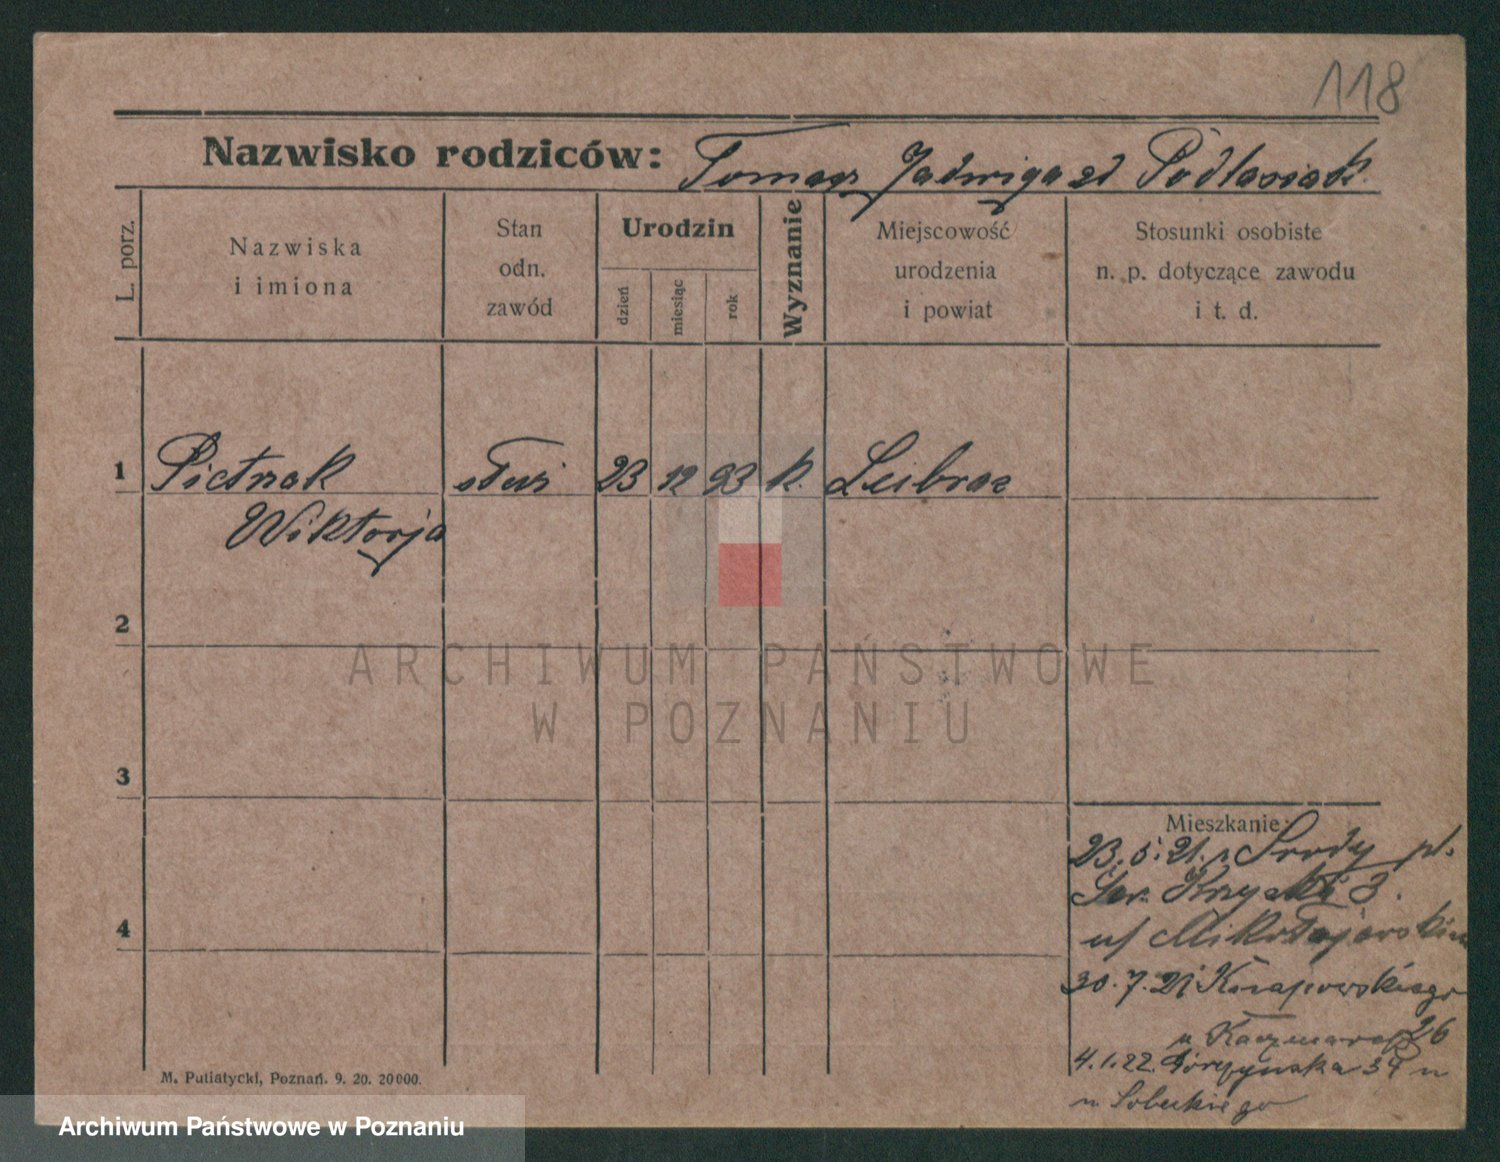 118
Nazwisko rodziców: Tomasz Jadwiga zd Podlasiak
L. porz.
Nazwiska
i imiona
Stan
odn.
zawód
Urodzin
dzień
miesiąc
rok
Wyznanie
Miejscowość
urodzenia
i powiat
Stosunki osobiste
n. p. dotyczące zawodu
i t. d.
1 Pietrzak służ 23 12 93 k.
Wiktorja
2
ARCHIWUM PAŃSTWOWE
W POZNANIU
3
Mieszkanie:
23.5.21. z Środy pl.
3.
4
30.7.21
u Kaczmarek 26
4.1.22. Górczyńska 39
u Sobeckiego
M. Putiatycki, Poznań. 9. 20. 20000.
Archiwum Państwowe w Poznaniu